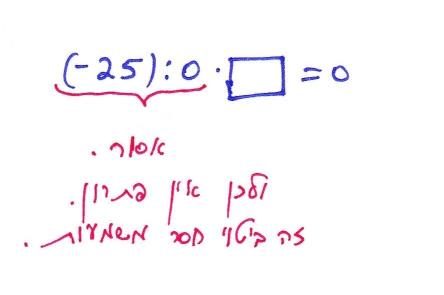 (-25):0·□=0
אסור.
ולכן אין פתרון.
זה ביטוי חסר משמעות.